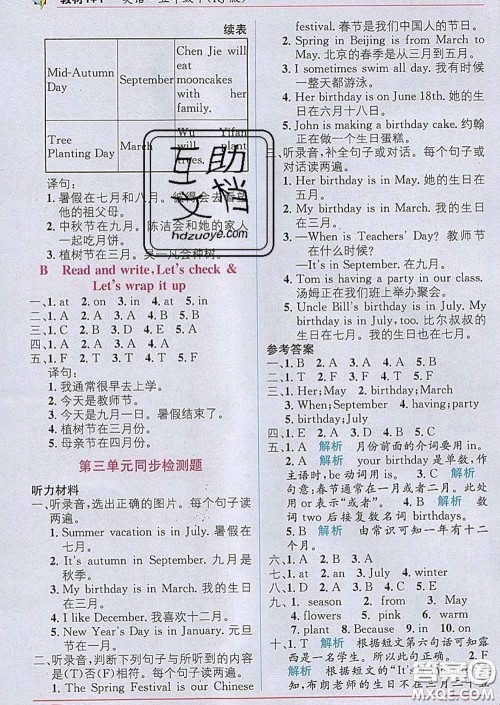 续表
Mid-Autumn Day
September
Chen Jie will eat mooncakes with her family.
Tree Planting Day
March
Wu Yifan will plant trees.
译句:
1. 暑假在七月和八月。
他的祖父母。
2. 中秋节在九月。陈洁会和她的家人
一起吃月饼。
3. 植树节在三月。吴一凡会种树。
B Read and write, Let's check &
Let's wrap it up
一、1. at 2. on 3. in 4. at 5. in
二、1. C 2. A 3. A 4. A 5. A
四、1. A 2. B 3. B 4. A 5. B
五、1. F 2. T 3. T 4. T 5. F
译句:
1. 我通常很早去上学。
2. 今天是教师节。
3. 今天是九月一日。暑假结束了。
4. 我的生日在三月。
5. 母亲节在四月份。
第三单元同步检测题
听力材料
一、听录音,选出正确的图片。每个句子读
两遍。
1. Summer vacation is in July. 暑假在
七月。
2. It's autumn in September. 九月是
秋季。
3. My birthday is in March. 我的生日
在三月。
4. I like December. 我喜欢十二月。
5. New Year's Day is in January. 元旦
节在一月。
二、听录音,判断下列句子与所听到的内容
是(T)否(F)相符。每个句子读两遍。
1. The Spring Festival is our Chinese
festival. 春节是我们中国人的节日。
2. Spring in Beijing is from March to
May. 北京的春季是从三月到五月。
3. I sometimes swim all day. 我有时候
一整天都游泳。
4. Her birthday is on June 18th. 她的生
日在六月十八日。
5. John is making a birthday cake. 约翰
正在做一个生日蛋糕。
三、听录音,补全句子或对话。每个句子或
对话读两遍。
1. Her birthday is in May. 她的生日在
五月。
2. My birthday is in March. 我的生日
在三月。
3. —When is Teachers' Day? 教师节
在什么时候?
—It's in September. 在九月。
4. Tom is having a party in our class.
汤姆正在我们班上举办聚会。
5. Uncle Bill's birthday is in July. My
birthday is in July, too. 比尔叔叔的
生日在七月。我的生日也在七月。
参考答案
一、1. B 2. A 3. A 4. B 5. B
二、1. T 2. T 3. F 4. F 5. T
三、1. Her; May 2. birthday; March
3. When; September 4. having; party
5. birthday; birthday; July
四、1. E 2. A 3. B 4. C 5. D
五、1. A 解析 月份前面的介词要用in。
2. A 解析 your birthday 是单数,作
主语时,be 动词用 is。 3. C 解析
句意:春节通常在一月或者二月。此处
用 or 表示“或者”。 4. B 解析 数
词 two 后接复数名词 birthdays。
5. B 解析 由常识可知一年有十二
个月。
六、1. B 2. A 3. A
七、1. D 2. C 3. B 4. E 5. A
九、1. season 2. from 3. May
4. flowers 5. pink 6. warm 7. wind
8. plant 9. Because 10. on
十、1. T 解析 根据短文第六句话可知露
西是一名学生。所以此句正确。
2. F 解析 根据短文的“It's
知,布朗老师的生日不在三月
互助文档
hdzuoye.com
答案圈
MXQE.COM